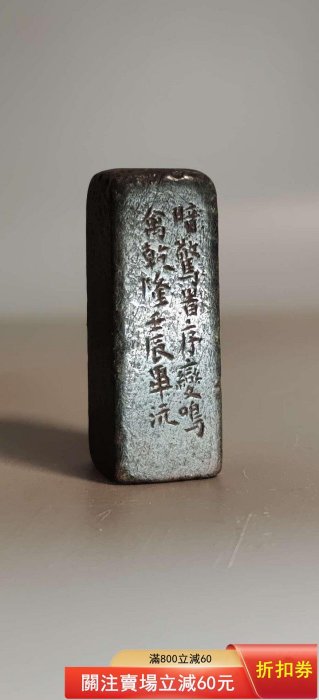 暗驚暑序變鳴
禽乾隆壬辰畢沅
滿800立減60
關注賣場立減60元
折扣券